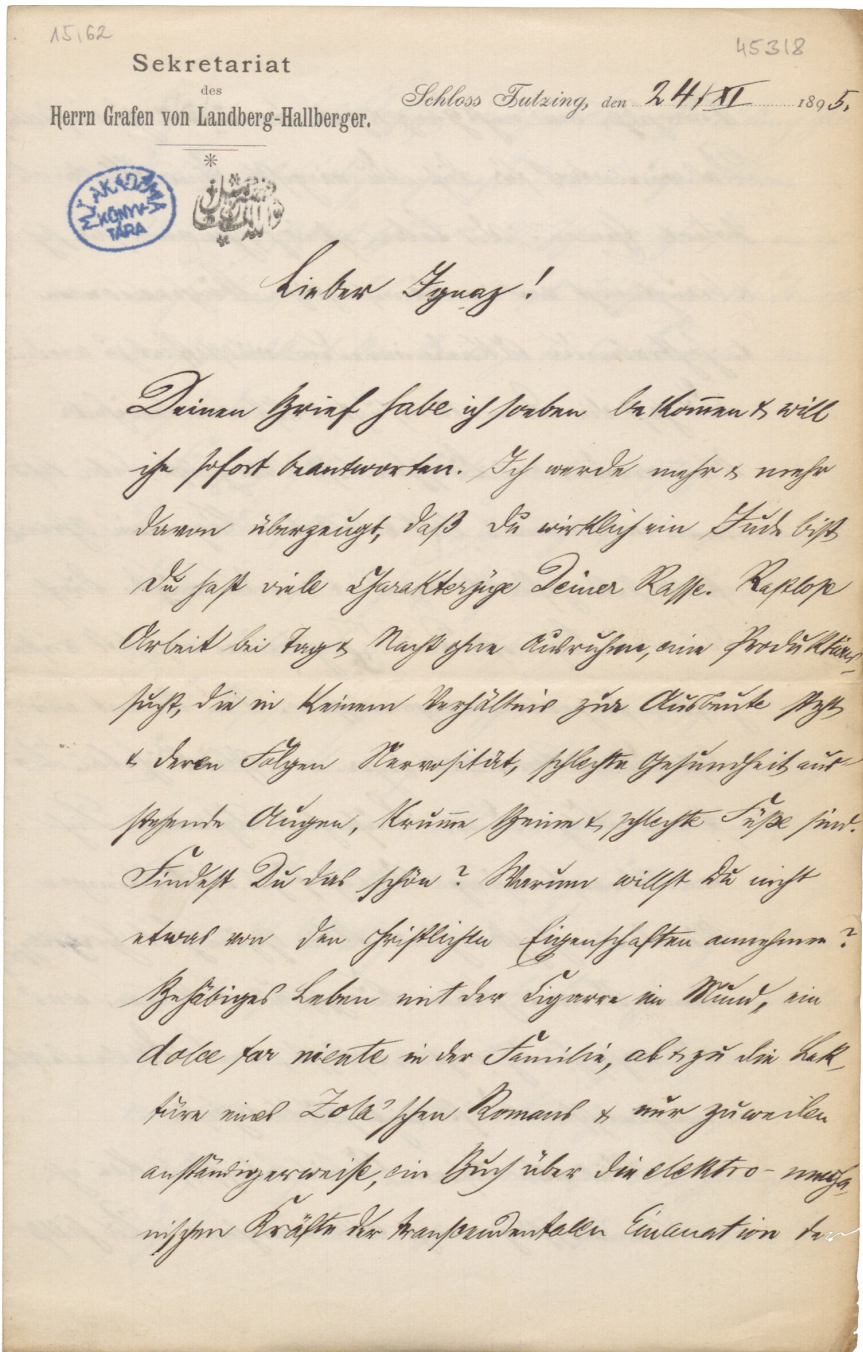 15,62
45318
Sekretariat
des
Herrn Grafen von Landberg-Hallberger.
Schloss Tutzing, den 24/XI 1895.
*
M. AKADÉMIA
KÖNYV-
TÁRA
Lieber Ignaz!
Deinen Brief habe ich soeben bekom̅en & will
ihn sofort beantworten. Ich werde mehr & mehr
davon überzeugt, daß Du wirklich ein Jude bist
Du hast viele Charakterzüge Deiner Rasse. Rastlose
Arbeit bei Tag & Nacht ohne Ausruhme, eine Produktions-
sucht, die in keinem Verhältnis zur Ausbeute steht
& deren Folgen Nervosität, schlechte Gesundheit aus-
stehende Augen, krum̅e Beine & schlechte Füße sind.
Findest Du das schön? Warum willst Du nicht
etwas von den christlichen Eigenschaften annehmen?
Behäbiges Leben mit der Cigarre im Mund, ein
dolce far niente in der Familie, ab & zu die Lek-
türe eines Zola'schen Romans & nur zuweilen
anständigerweise, ein Buch über die elektro-mecha-
nischen Kräfte der transcendentalen Emanation der